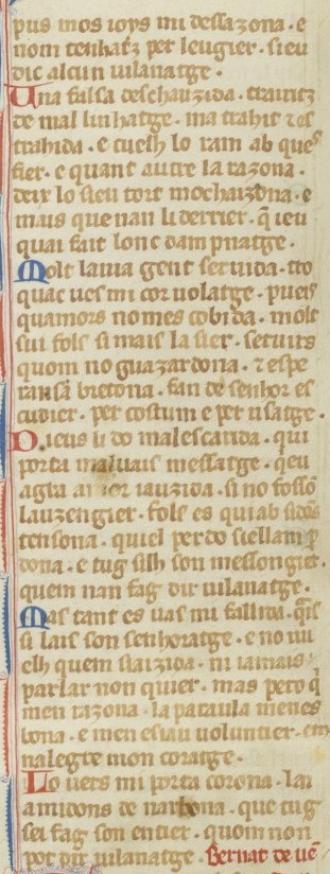 pus mos ioys mi dessazona. e
nom tenhatz per leugier. sieu
dic alcun uilanatge.
Una falsa deschauzida. trairitz
de mal linhatge. ma trahit z es
trahida. e cuelh lo ram ab ques
fier. e quant autre la razona.
deis lo sieu tort mochaizona. e
mais que nan li derrier. q̃ ieu
quai fait lonc dampnatge.
Molt lauia gent seruida. tro
quac ues mi cor uolatge. pueis
quamors no mes cobida. molt
sui fols si mais la sier. seruirs
quom no guazardona. z espe
ransa bretona. fan de senhor es
cudier. per costum e per usatge.
Dieus li do mal escarida. qui
porta maluais messatge. qeu
agra amor iauzida. si no fosso
lauzengier. fols es qui ab sidos
tensona. quiel perdo siellam p
dona. e tug silh son messongier.
quem nan fag dir uilanatge.
Mas tant es uas mi fallida. q̃is
si lais son senhoratge. e no uu
elh quem siaizida. ni iamais
parlar non quier. mas pero q̃
men razona. la paraula menes
bona. e men esiau uoluntier. em
nalegre mon coratge.
Lo uers mi porta corona. lai
a midons de narbona. que tug
sei fag son entier. quom non
pot dir uilanatge. Bernat de ue͂